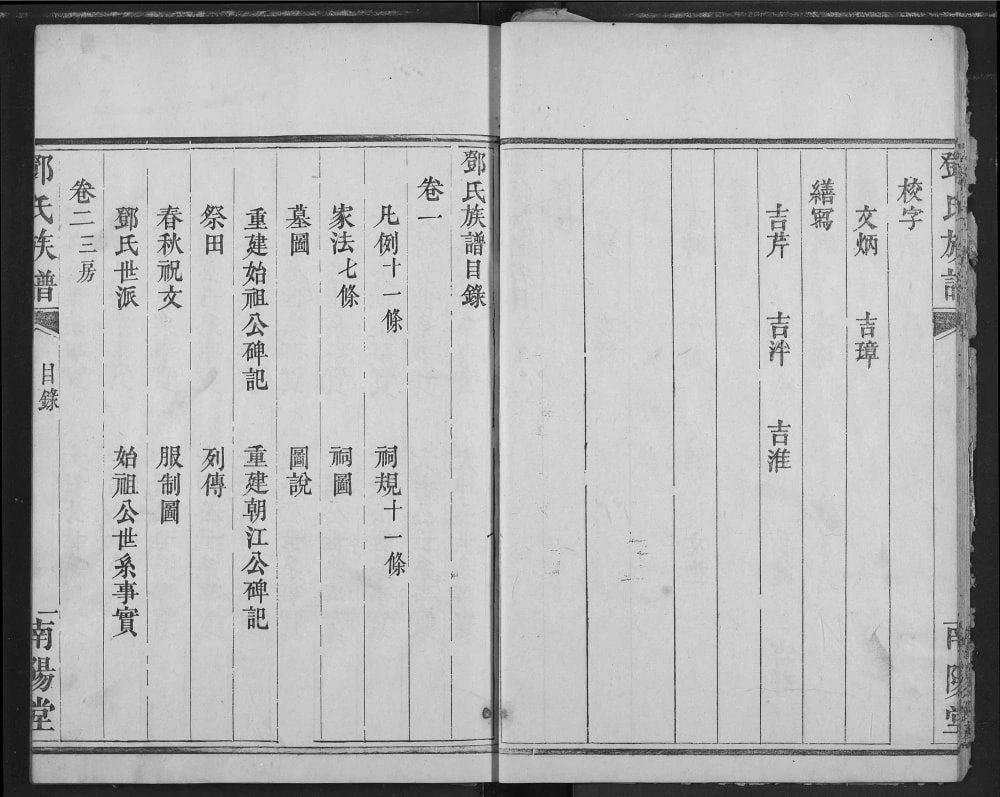 鄧氏族譜
南陽堂
校字
文炳 吉璋
繕寫
吉芹 吉泮 吉淮
鄧氏族譜目錄
卷一
凡例十一條 祠規十一條
家法七條 祠圖
墓圖 圖說
重建始祖公碑記 重建朝江公碑記
祭田 列傳
春秋祝文 服制圖
鄧氏世派 始祖公世系事實
卷二 三房
鄧氏族譜 目錄 一 南陽堂